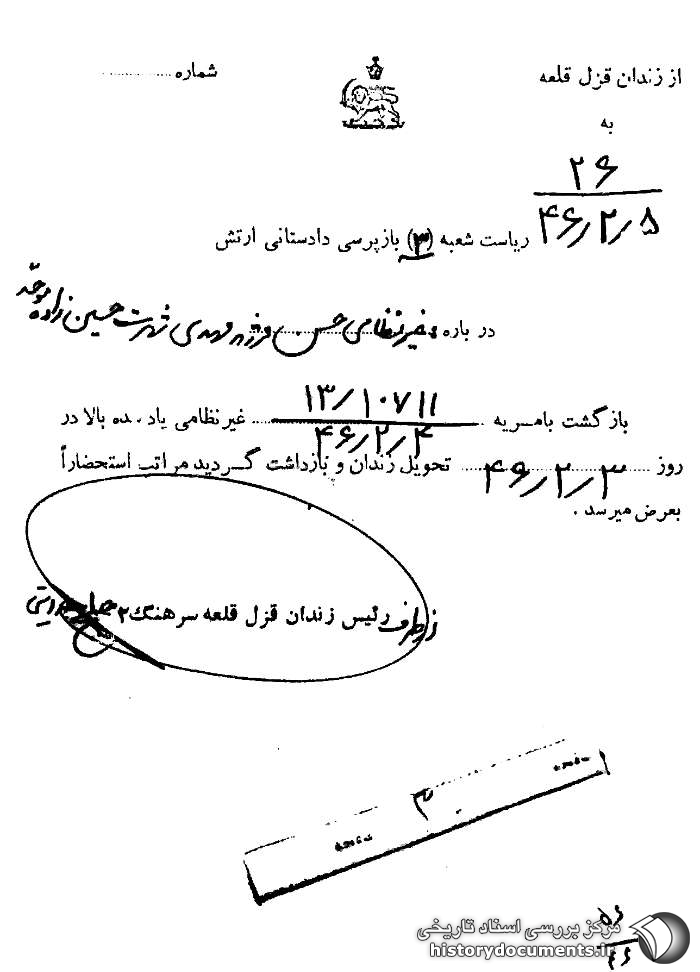 از زندان قزل قلعه
شماره ..............
به
۲۶
۴۶/۲/۵
ریاست شعبه (۳) بازپرسی دادستانی ارتش
در باره غیرنظامی حسن فرزند مهدی شهرت حسین زاده موحد
بازگشت بامریه ۱۳/۱۰۷۱۱ غیرنظامی یاد شده بالا در
۴۶/۲/۴
روز ۴۶/۲/۳ تحویل زندان و بازداشت گردید مراتب استحضاراً
بعرض میرسد .
از طرف رئیس زندان قزل قلعه سرهنگ ۲
صفحه
۳
صفحه
۵۶
۴۶
مرکز بررسی اسناد تاریخی
historydocuments.ir